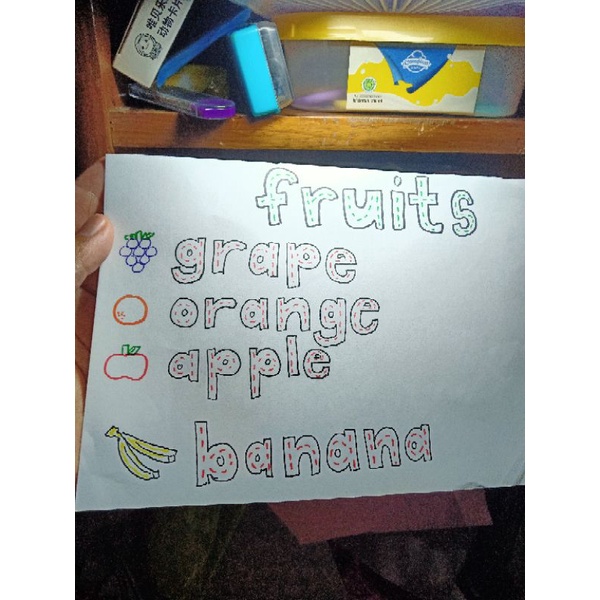 fruits
grape
orange
apple
banana
动物卡片